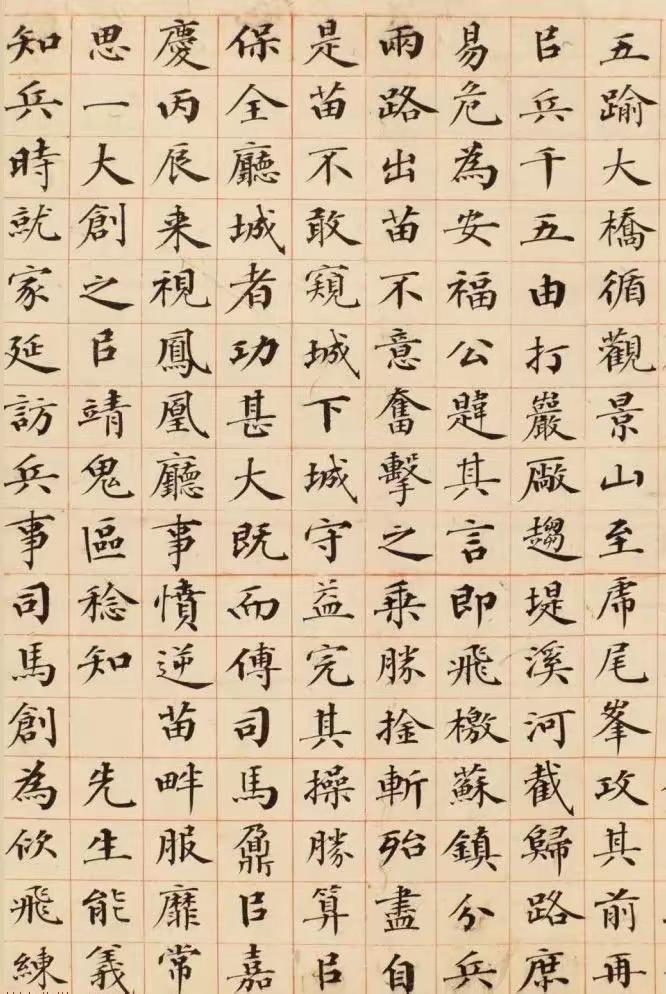 五踰大橋循觀景山至虎尾峯攻其前再
㠯兵千五由打巖厰趨堤溪河截歸路庶
易危為安福公韙其言即飛檄蘇鎮分兵
兩路出苗不意奮擊之乗勝捦斬殆盡自
是苗不敢窺城下城守益完其操勝算㠯
保全廳城者功甚大既而傅司馬鼐㠯嘉
慶丙辰来視鳳凰廳事憤逆苗畔服靡常
思一大創之㠯靖鬼區稔知 先生能義
知兵時就家延訪兵事司馬創為佽飛練